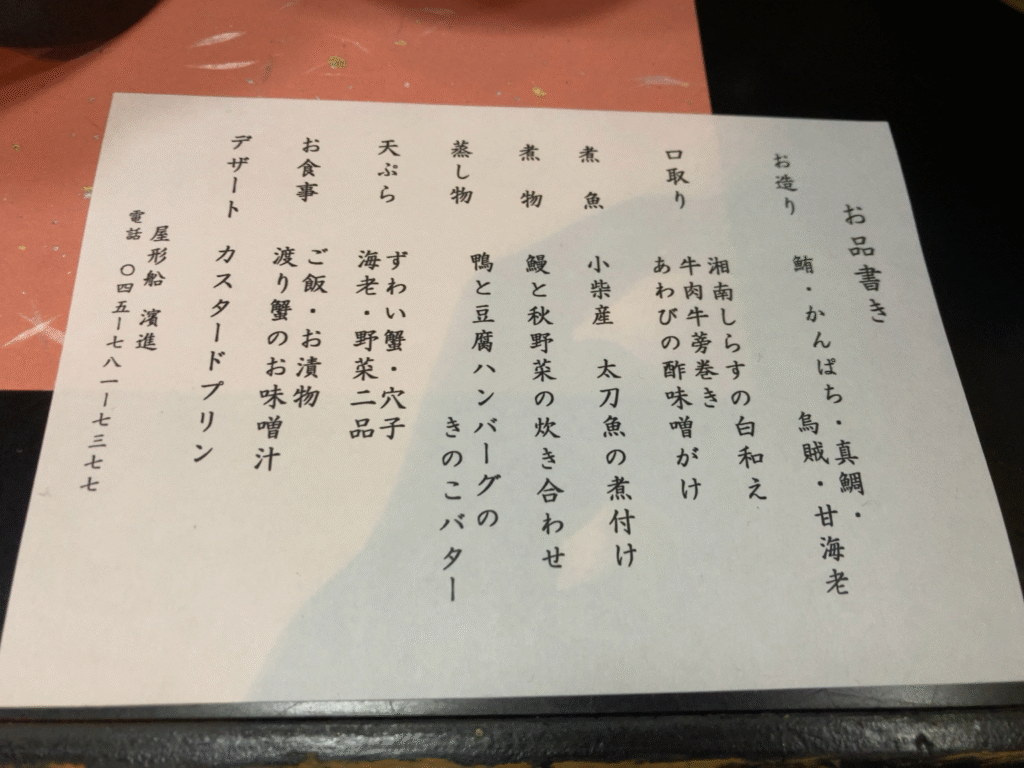 お品書き
お造り 鮪・かんぱち・真鯛・
烏賊・甘海老
口取り 湘南しらすの白和え
牛肉牛蒡巻き
あわびの酢味噌がけ
煮魚 小柴産 太刀魚の煮付け
煮物 鰻と秋野菜の炊き合わせ
蒸し物 鴨と豆腐ハンバーグの
きのこバター
天ぷら ずわい蟹・穴子
海老・野菜二品
お食事 ご飯・お漬物
渡り蟹のお味噌汁
デザート カスタードプリン
屋形船 濱進
電話 〇四五ー七八一ー七三七七